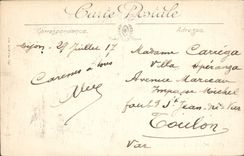 Carte Postale
Correspondance
Adresse
Dijon - 29 Juillet 17
Madame Carrega
Villa Spéranza
Avenue Marceau
Impasse Michel
St Jean du Var
Toulon
Var